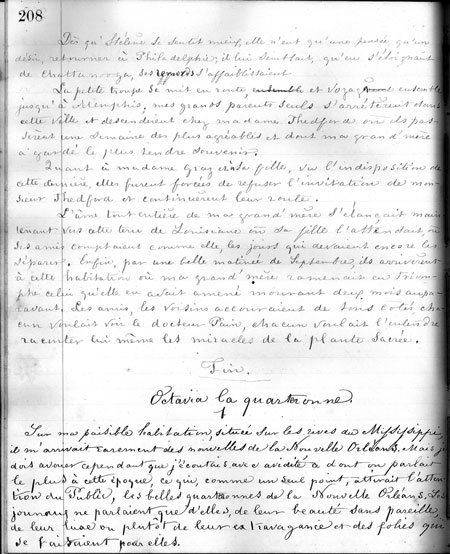 208
Dès qu'Hélène se sentit mieux, elle n'eut qu'une pensée, qu'un
désir, retourner à Philadelphie; il lui semblait, qu'en s'éloignant
de Chattanooga, ses remords s'affaiblissaient.
La petite troupe se mit en route, et voyagea ensemble
jusqu'à Memphis, mes grands parents seuls s'arrêtèrent dans
cette ville et descendirent chez madame Thedford où ils pas-
sèrent une semaine des plus agréables et dont ma grand'mère
a gardé le plus tendre souvenir.
Quant à madame Gray et sa fille, vu l'indisposition de
cette dernière, elles furent forcées de refuser l'invitation de mon-
sieur Thedford et continuèrent leur route.
L'âme tout entière de ma grand'mère s'élançait main-
tenant vers cette terre de Louisiane où sa fille l'attendait, où
ses amis comptaient comme elle, les jours qui devaient encore les
séparer. Enfin, par une belle matinée de Septembre, ils arrivèrent
à cette habitation où ma grand'mère ramenait en triom-
phe celui qu'elle en avait amené mourant deux mois aupa-
ravant. Les amis, les voisins accouraient de tous cotés, cha-
cun voulait voir le docteur Pain, chacun voulait l'entendre
raconter lui même les miracles de la plante Sacrée.
Fin.
Octavia la quarteronne.
1
Sur ma paisible habitation, située sur les rives du Mississippi,
il m'arrivait rarement des nouvelles de la Nouvelle Orléans. Mais je
dois avouer cependant que j'écoutais avec avidité ce dont on parlait
le plus à cette époque, ce qui, comme un seul point, attirait l'atten-
tion du Public, les belles quarteronnes de la Nouvelle Orléans. Les
journaux ne parlaient que d'elles, de leur beauté sans pareille,
de leur luxe ou plutôt de leur extravagance et des folies qui
se faisaient pour elles.